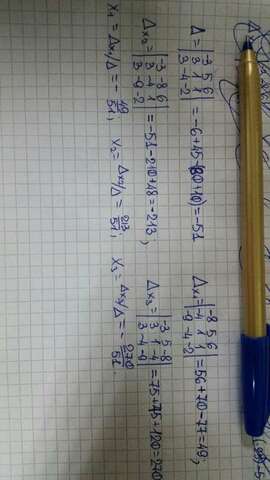 Δ = |-3 5 6; 3 1 1; 3 -4 -2| = -6+45-(80+10) = -51 Δx₁ = |-8 5 6; -4 1 1; -9 -4 -2| = 56+70-77=49,
Δx₂ = |-3 -8 6; 3 -4 1; 3 -9 -2| = -51-210+48=-213, Δx₃ = |-3 5 -8; 3 1 -4; 3 -4 -9| = 75+75+120=270
X₁ = Δx₁/Δ = -49/51; X₂ = Δx₂/Δ = 213/51; X₃ = Δx₃/Δ = -270/51.